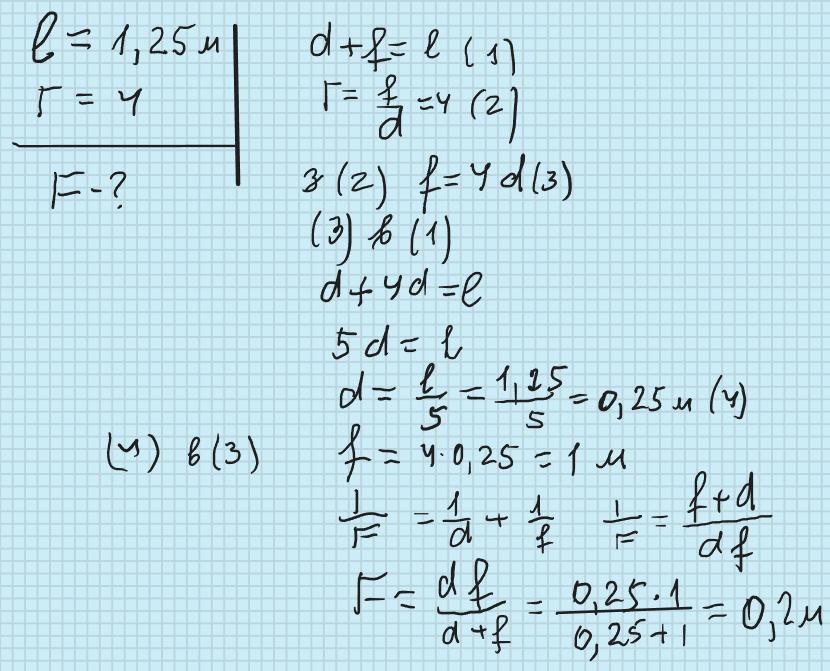 l = 1,25 м
Г = 4
F - ?
d + f = l (1)
Г = f/d = 4 (2)
з (2) f = 4d (3)
(3) в (1)
d + 4d = l
5d = l
d = l/5 = 1,25/5 = 0,25 м (4)
(4) в (3) f = 4·0,25 = 1 м
1/F = 1/d + 1/f 1/F = f+d/df
F = df/d+f = 0,25·1/0,25+1 = 0,2 м